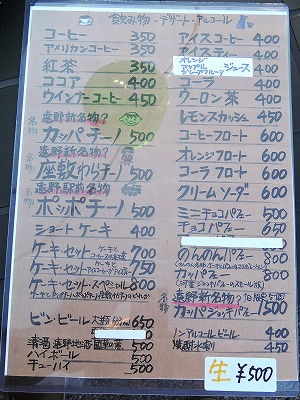 飲み物・デザート・アルコール
コーヒー 350
アメリカンコーヒー 350
紅茶 350
ココア 400
ウインナーコーヒー 450
遠野新名物?
名物 カッパチーノ 500
遠野新名物?
名物 座敷わらチーノ 500
遠野駅前新名物
名物 ポッポチーノ 500
ショートケーキ 400
ケーキ・セット 700
ケーキ・セット 750
ケーキ・セット・スペシャル 800
ビン・ビール 650
清酒 500
ハイボール 500
チューハイ 500
アイスコーヒー 400
アイスティー 400
オレンジ
アップル
グレープフルーツ ジュース 400
コーラ 400
ウーロン茶 400
レモンスカッシュ 450
コーヒーフロート 600
オレンジフロート 600
コーラフロート 600
クリームソーダ 600
ミニチョコパフェー 500
チョコパフェー 650
のんのんパフェー 800
カッパパフェー 800
遠野新名物? 1日限定5個
名物 カッパジョッキパフェー 1500
ノンアルコールビール 400
生 ¥500